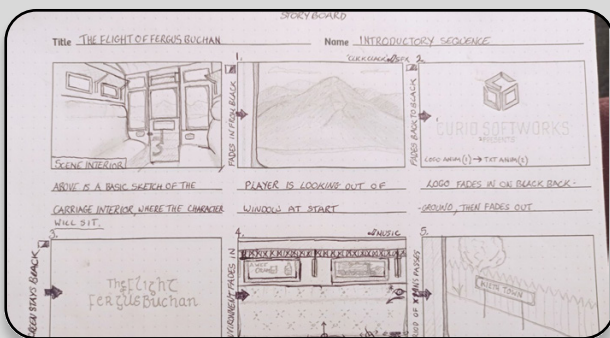 STORYBOARD
Title THE FLIGHT OF FERGUS BUCHAN
Name INTRODUCTORY SEQUENCE
1.
"CLICK CLACK" SFX
2.
SCENE INTERIOR
FADES IN FROM BLACK
FADES BACK TO BLACK
CURIO SOFTWORKS
PRESENTS
LOGO ANIM(1) → TXT ANIM(2)
ABOVE IS A BASIC SKETCH OF THE
CARRIAGE INTERIOR, WHERE THE CHARACTER
WILL SIT.
PLAYER IS LOOKING OUT OF
WINDOW AT START
LOGO FADES IN ON BLACK BACK-
-GROUND, THEN FADES OUT
3.
4.
MUSIC
5.
STAYS BLACK
The Flight
Fergus Buchan
FADES IN
PASSES
TOWN